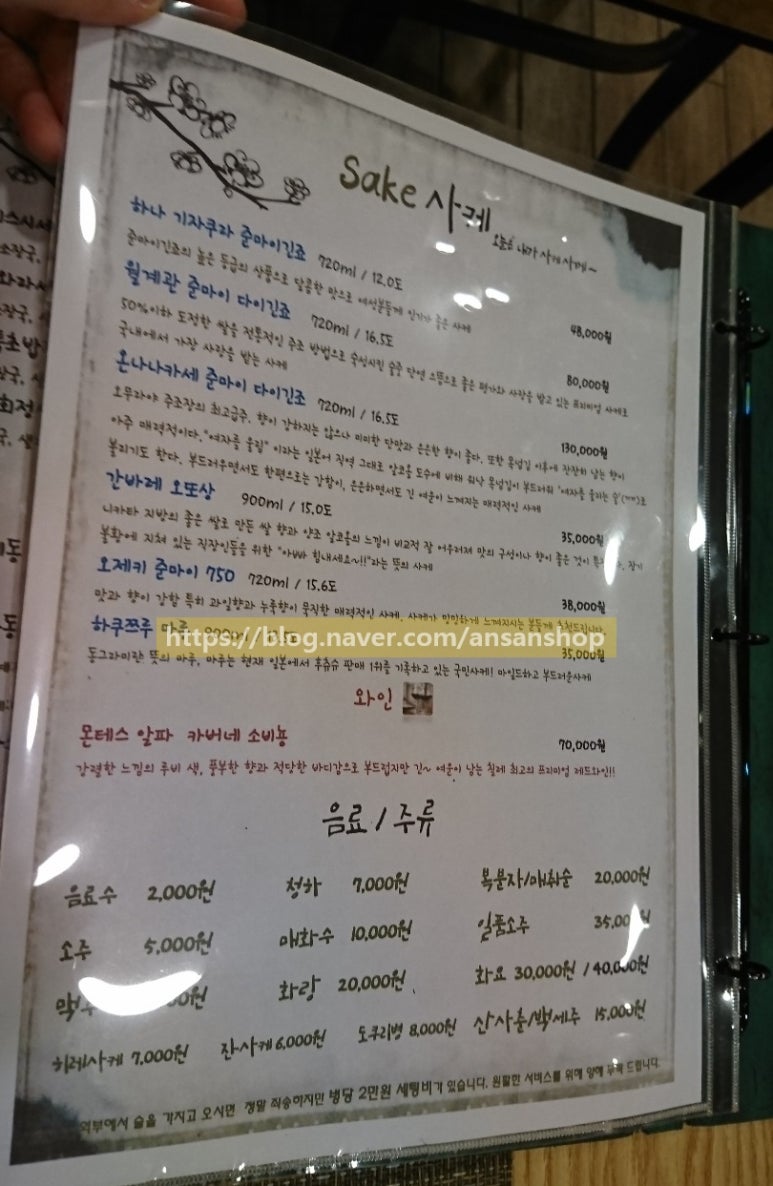 Sake 사케 오늘은 내가 사케 사케~
하나 기자쿠라 준마이긴죠 720ml / 12.0도
준마이긴죠의 높은 등급의 상품으로 달콤한 맛으로 여성분들께 인기가 좋은 사케 48,000원
월계관 준마이 다이긴죠 720ml / 16.5도
50%이하 도정한 쌀을 전통적인 주조 방법으로 숙성시킨 술중 단연 으뜸으로 좋은 평가와 사랑을 받고 있는 프리미엄 사케로 80,000원
국내에서 가장 사랑을 받는 사케
온나나카세 준마이 다이긴죠 720ml / 16.5도
오무라야 주조장의 최고급주. 향이 강하지는 않으나 미미한 단맛과 은은한 향이 좋다. 또한 목넘김 이후에 잔잔히 남는 향이 130,000원
아주 매력적이다. "여자를 울림" 이라는 일본어 직역 그대로 알코올 도수에 비해 워낙 목넘김이 부드러워 '여자를 울리는 술'(ㅠㅠ)로
불리기도 한다. 부드러우면서도 한편으로는 강함이, 은은하면서도 긴 여운이 느껴지는 매력적인 사케
간바레 오또상 900ml / 15.0도 35,000원
니카타 지방의 좋은 쌀로 만든 쌀 향과 양조 알코올의 느낌이 비교적 잘 어우러져 맛의 구성이나 향이 좋은 것이 장기
불황에 지쳐 있는 직장인들을 위한 "아빠 힘내세요~!!"라는 뜻의 사케
오제키 준마이 750 720ml / 15.6도 38,000원
맛과 향이 강함 특히 과일향과 누룩향이 묵직한 매력적인 사케. 사케가 밍밍하게 느껴지시는 분들께 추천드립니다
하쿠쯔루 마루 35,000원
https://blog.naver.com/ansanshop
동그라미란 뜻의 마루, 마루는 현재 일본에서 후츄슈 판매 1위를 기록하고 있는 국민사케! 마일드하고 부드러운사케
와인
몬테스 알파 카버네 소비뇽 70,000원
강렬한 느낌의 루비 색, 풍부한 향과 적당한 바디감으로 부드럽지만 긴~ 여운이 남는 칠레 최고의 프리미엄 레드와인!!
음료 / 주류
음료수 2,000원 청하 7,000원 복분자/매취순 20,000원
소주 5,000원 매화수 10,000원 일품소주 35,00
화랑 20,000원 화요 30,000원 / 40,000원
히레사케 7,000원 잔사케 6,000원 도쿠리병 8,000원 산사춘/백세주 15,000원
외부에서 술을 가지고 오시면 정말 죄송하지만 병당 2만원 세팅비가 있습니다. 원활한 서비스를 위해 양해 부탁 드립니다.